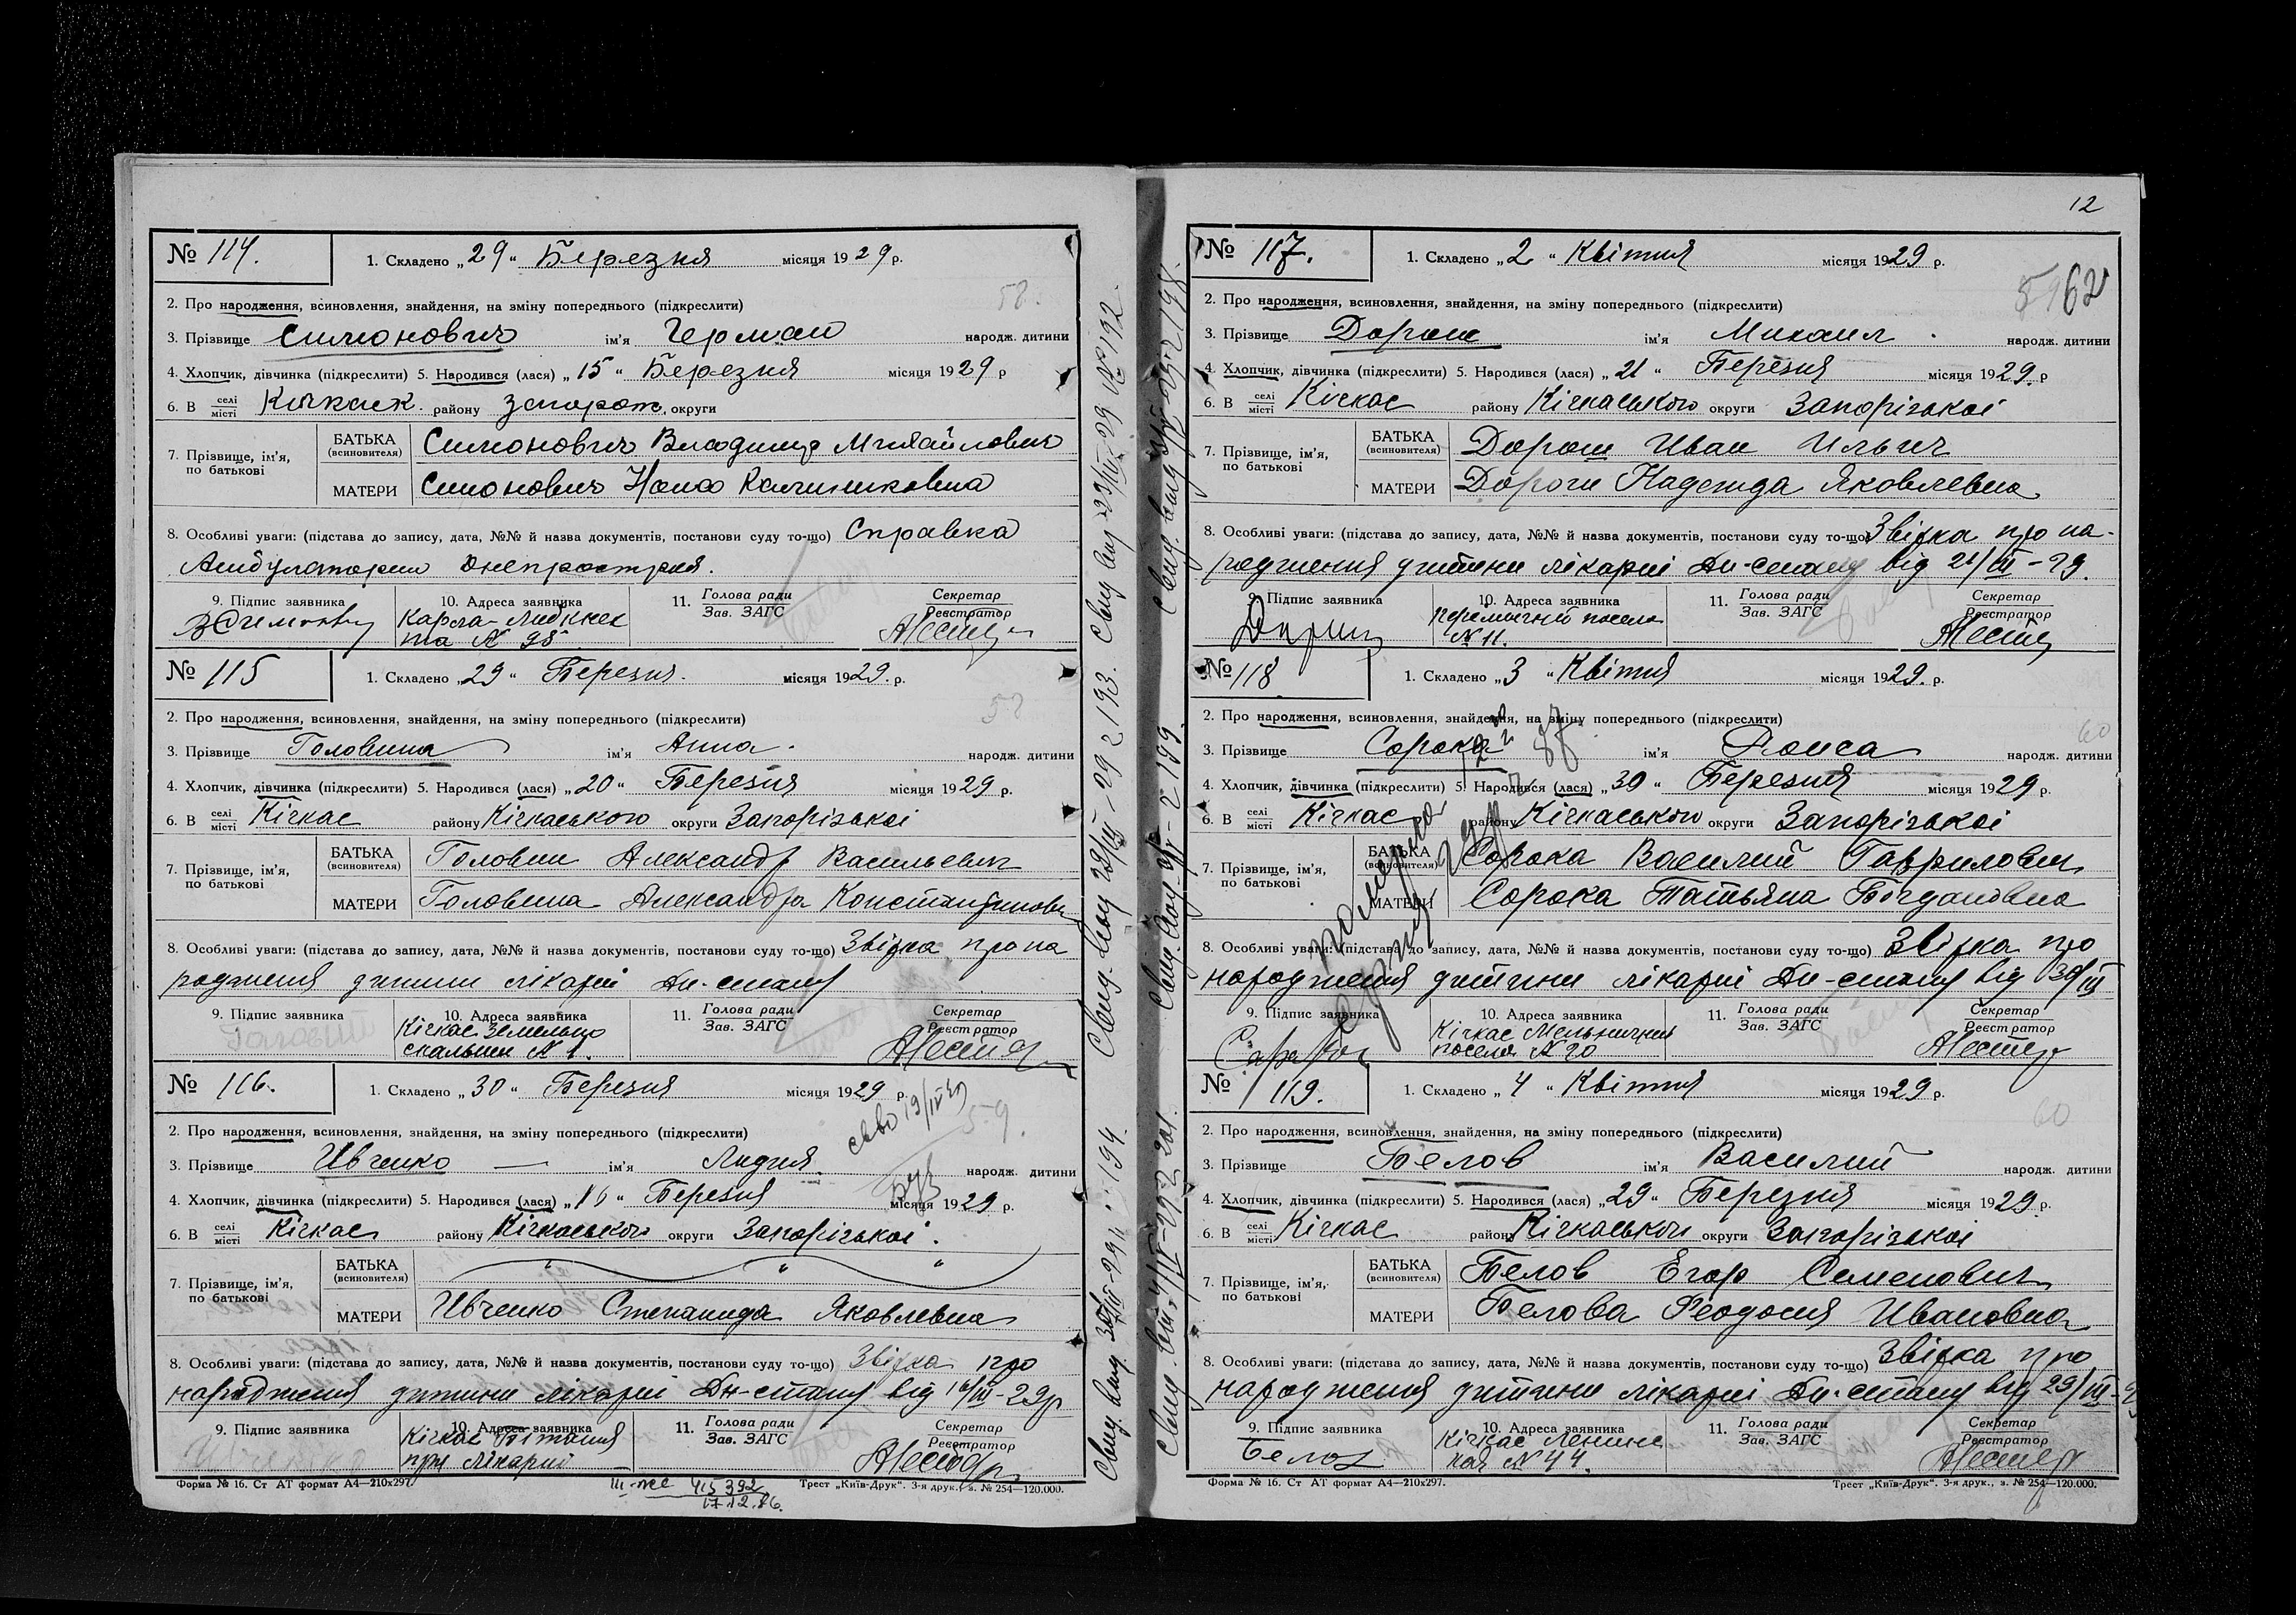 № 114.
1. Складено „ 29 “ Березня місяця 19 29 р.
2. Про народження, всиновлення, знайдення, на зміну попереднього (підкреслити)
3. Прізвище Симонович ім'я Герман народж. дитини
4. Хлопчик, дівчинка (підкреслити) 5. Народився (лася) „ 15 “ Березня місяця 19 29 р
6. В селі місті Кичкас району Запорож. округи
7. Прізвище, ім'я, по батькові
БАТЬКА (всиновителя) Симонович Владимир Михайлович
МАТЕРИ Симонович
8. Особливі уваги: (підстава до запису, дата, №№ й назва документів, постанови суду то-що) Справка
Амбулатории Днепростроя.
9. Підпис заявника 10. Адреса заявника 11. Голова ради Зав. ЗАГС Секретар Реєстратор
Карла-Либкнех
та № 98
№ 115
1. Складено „ 29 “ Березня. місяця 19 29. р.
2. Про народження, всиновлення, знайдення, на зміну попереднього (підкреслити)
3. Прізвище Головина ім'я Анна. народж. дитини
4. Хлопчик, дівчинка (підкреслити) 5. Народився (лася) „ 20 “ Березня місяця 19 29 р.
6. В селі місті Кічкас району Кічкаського округи Запорізької
7. Прізвище, ім'я, по батькові
БАТЬКА (всиновителя) Головин Александр Васильевич
МАТЕРИ Головина Александра Константиновн
8. Особливі уваги: (підстава до запису, дата, №№ й назва документів, постанови суду то-що) Звідка про на
родження дитини лікарні Дн-стану
9. Підпис заявника 10. Адреса заявника 11. Голова ради Зав. ЗАГС Секретар Реєстратор
Кічкас
№ 1.
№ 116.
1. Складено „ 30 “ Березня місяця 19 29 р.
2. Про народження, всиновлення, знайдення, на зміну попереднього (підкреслити)
59.
3. Прізвище Ивченко — ім'я Лидия. народж. дитини
4. Хлопчик, дівчинка (підкреслити) 5. Народився (лася) „ 16 “ Березня місяця 19 29 р.
6. В селі місті Кічкас району Кічкаського округи Запорізької.
7. Прізвище, ім'я, по батькові
БАТЬКА (всиновителя) " " "
МАТЕРИ Ивченко Степанида Яковлевна
8. Особливі уваги: (підстава до запису, дата, №№ й назва документів, постанови суду то-що) Звідка про
народження дитини лікарні Дн-стану від 16/III-29р
9. Підпис заявника 10. Адреса заявника 11. Голова ради Зав. ЗАГС Секретар Реєстратор
Кічкас
при лікарні
Форма № 16. Ст АТ формат А4—210x297.
415392
17.12.86.
Трест „Київ-Друк“. 3-я друк., з. № 254—120.000.
12
№ 117.
1. Складено „ 2 “ Квітня місяця 19 29 р.
62
2. Про народження, всиновлення, знайдення, на зміну попереднього (підкреслити)
3. Прізвище Дорош ім'я Михаил народж. дитини
4. Хлопчик, дівчинка (підкреслити) 5. Народився (лася) „ 21 “ Березня місяця 19 29. р
6. В селі місті Кічкас району Кічкаського округи Запорізької
7. Прізвище, ім'я, по батькові
БАТЬКА (всиновителя) Дорош Иван Ильич
МАТЕРИ Дорош Надежда Яковлевна
8. Особливі уваги: (підстава до запису, дата, №№ й назва документів, постанови суду то-що) Звідка про на-
родження дитини лікарні Дн-стану від 21/III-29.
9. Підпис заявника 10. Адреса заявника 11. Голова ради Зав. ЗАГС Секретар Реєстратор
№ 11.
№ 118
1. Складено „ 3 “ Квітня місяця 19 29. р.
2. Про народження, всиновлення, знайдення, на зміну попереднього (підкреслити)
60
3. Прізвище Сорока ім'я Раиса народж. дитини
4. Хлопчик, дівчинка (підкреслити) 5. Народився (лася) „ 30 “ Березня місяця 19 29 р.
6. В селі місті Кічкас району Кічкаського округи Запорізької
7. Прізвище, ім'я, по батькові
БАТЬКА (всиновителя) Сорока Василий Гаврилович
МАТЕРИ Сорока Татьяна Богдановна
8. Особливі уваги: (підстава до запису, дата, №№ й назва документів, постанови суду то-що) Звідка про
народження дитини лікарні Дн-стану від 30/III
9. Підпис заявника 10. Адреса заявника 11. Голова ради Зав. ЗАГС Секретар Реєстратор
Кічкас Мельничний
поселок № 20
№ 119.
1. Складено „ 4 “ Квітня місяця 19 29 р.
60
2. Про народження, всиновлення, знайдення, на зміну попереднього (підкреслити)
3. Прізвище Белов ім'я Василий народж. дитини
4. Хлопчик, дівчинка (підкреслити) 5. Народився (лася) „ 29 “ Березня місяця 19 29 р.
6. В селі місті Кічкас району Кічкаського округи Запорізької
7. Прізвище, ім'я, по батькові
БАТЬКА (всиновителя) Белов Егор Семенович
МАТЕРИ Белова Феодосия Ивановна
8. Особливі уваги: (підстава до запису, дата, №№ й назва документів, постанови суду то-що) Звідка про
народження дитини лікарні Дн-стану від 29/III-29
9. Підпис заявника 10. Адреса заявника 11. Голова ради Зав. ЗАГС Секретар Реєстратор
Белов
Кічкас Ленинс
кая № 44.
Форма № 16. Ст АТ формат А4—210x297.
Трест „Київ-Друк“. 3-я друк., з. № 254—120.000.